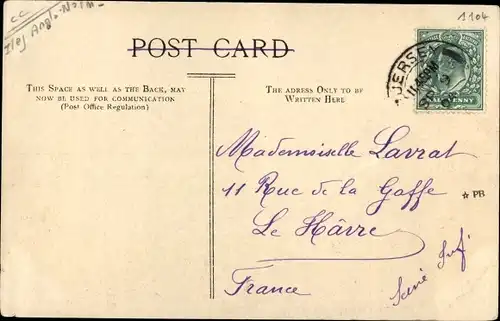 CC
1104
POST CARD
JERSEY
HALFPENNY
THIS SPACE AS WELL AS THE BACK, MAY
NOW BE USED FOR COMMUNICATION
(Post Office Regulation)
THE ADRESS ONLY TO BE
WRITTEN HERE
Mademoiselle Lavrat
11 Rue de la Gaffe
☆ PB
Le Hâvre
France